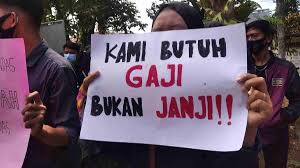 KAMI BUTUH
GAJI
BUKAN JANJI!!!